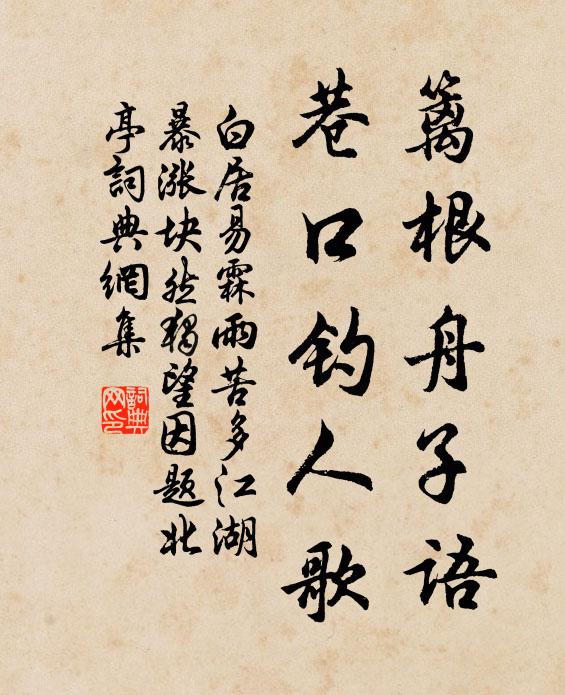 篱根舟子語
巷口钓人歌
白居易霖雨苦多江湖
暴涨块然獨望因題北
亭詞典網集
詞典
网印